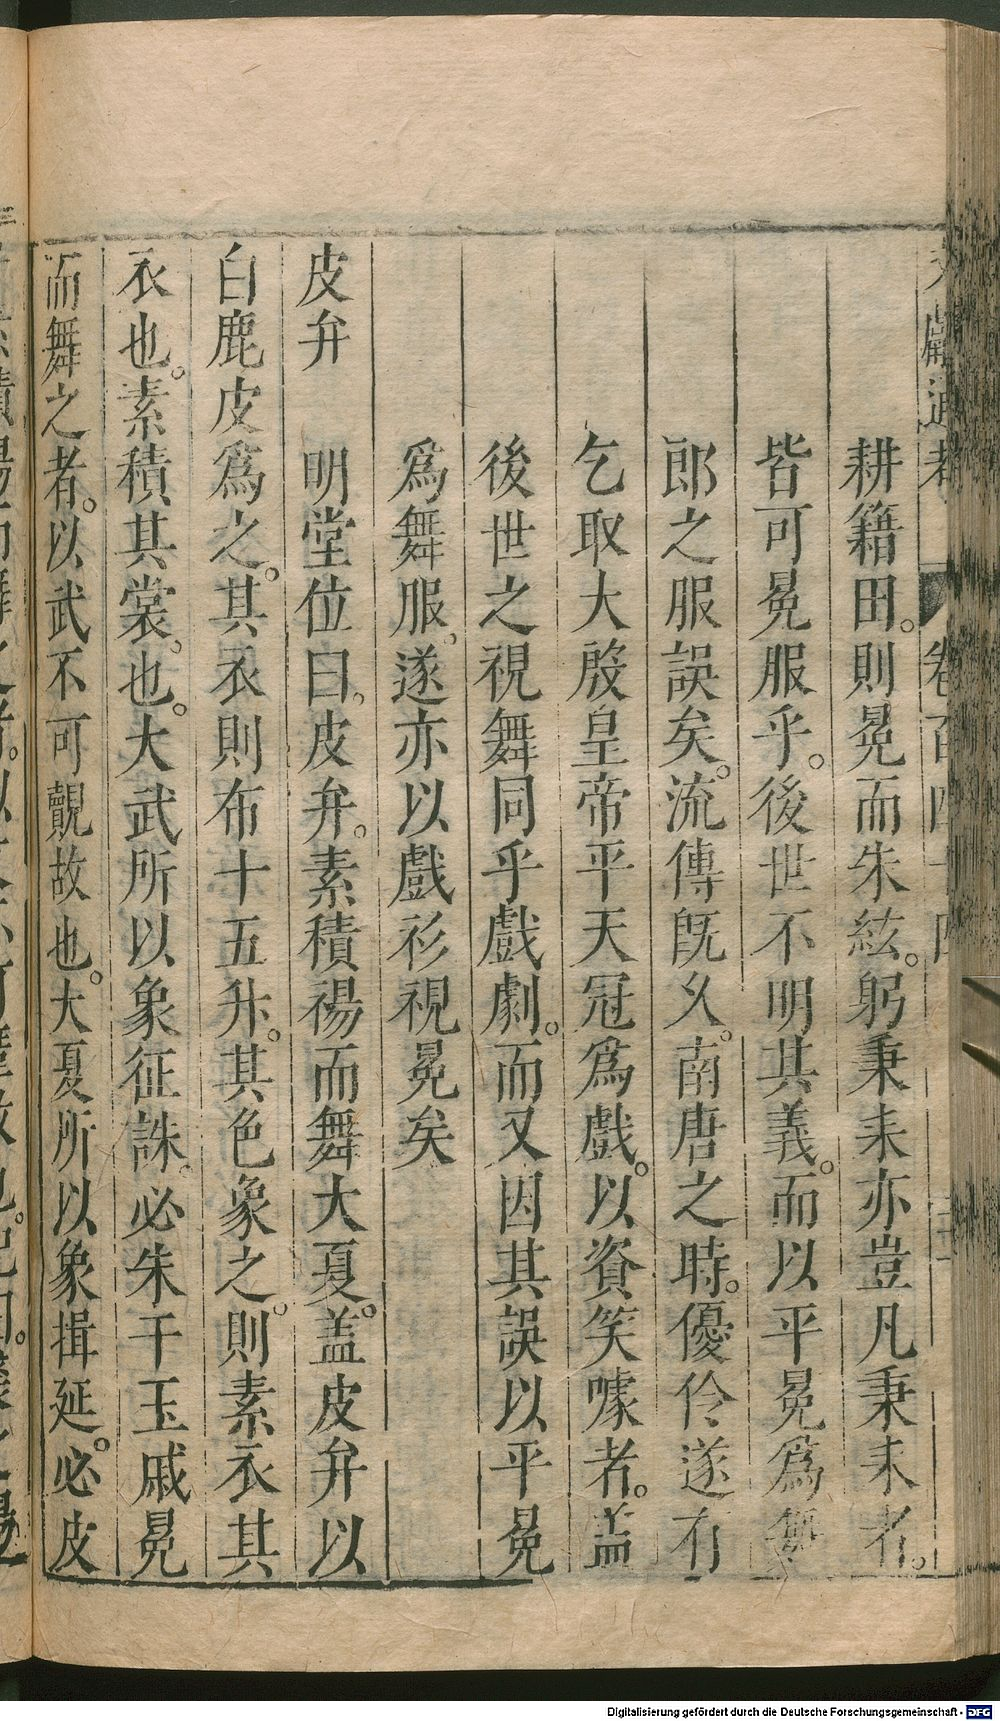 文獻通考 卷百四十四
耕籍田。則冕而朱絃。躬秉耒亦豈凡秉耒者。
皆可冕服乎。後世不明其義。而以平冕爲舞
郎之服誤矣。流傳旣久。南唐之時。優伶遂有
乞取大殷皇帝平天冠爲戲。以資笑噱者。盖
後世之視舞同乎戲劇。而又因其誤以平冕
爲舞服。遂亦以戲衫視冕矣
皮弁 明堂位曰。皮弁。素積裼而舞大夏。盖皮弁以
白鹿皮爲之。其衣則布十五升。其色象之。則素衣其
衣也。素積其裳。也。大武所以象征誅。必朱干玉戚冕
而舞之者。以武不可覿故也。大夏所以象揖延。必皮
Digitalisierung gefördert durch die Deutsche Forschungsgemeinschaft - DFG